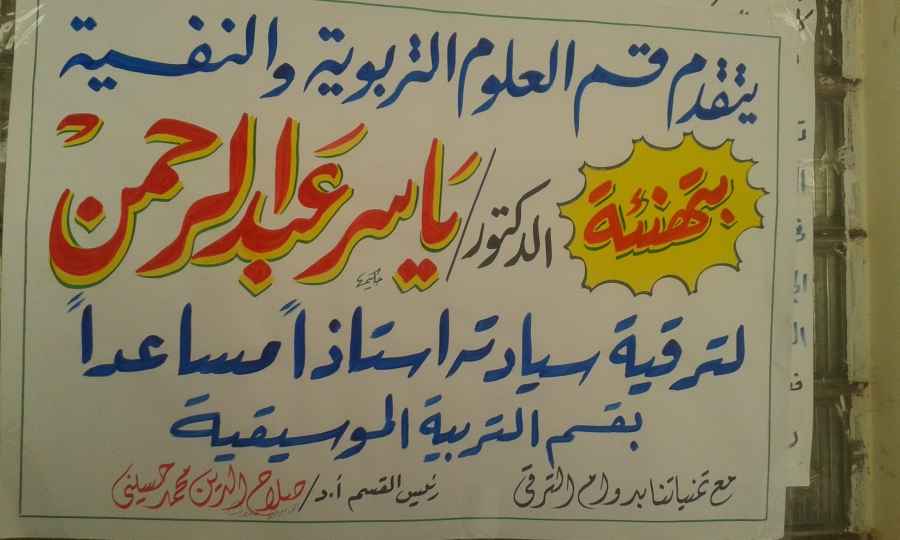 يتقدم قسم العلوم التربوية والنفسية
بتهنئة الدكتور/ ياسر عبدالرحمن
لترقية سيادته استاذاً مساعداً
بقسم التربية الموسيقية
مع تمنياتنا بدوام الترقى رئيس القسم أ.د/ صلاح الدين محمد حسينى